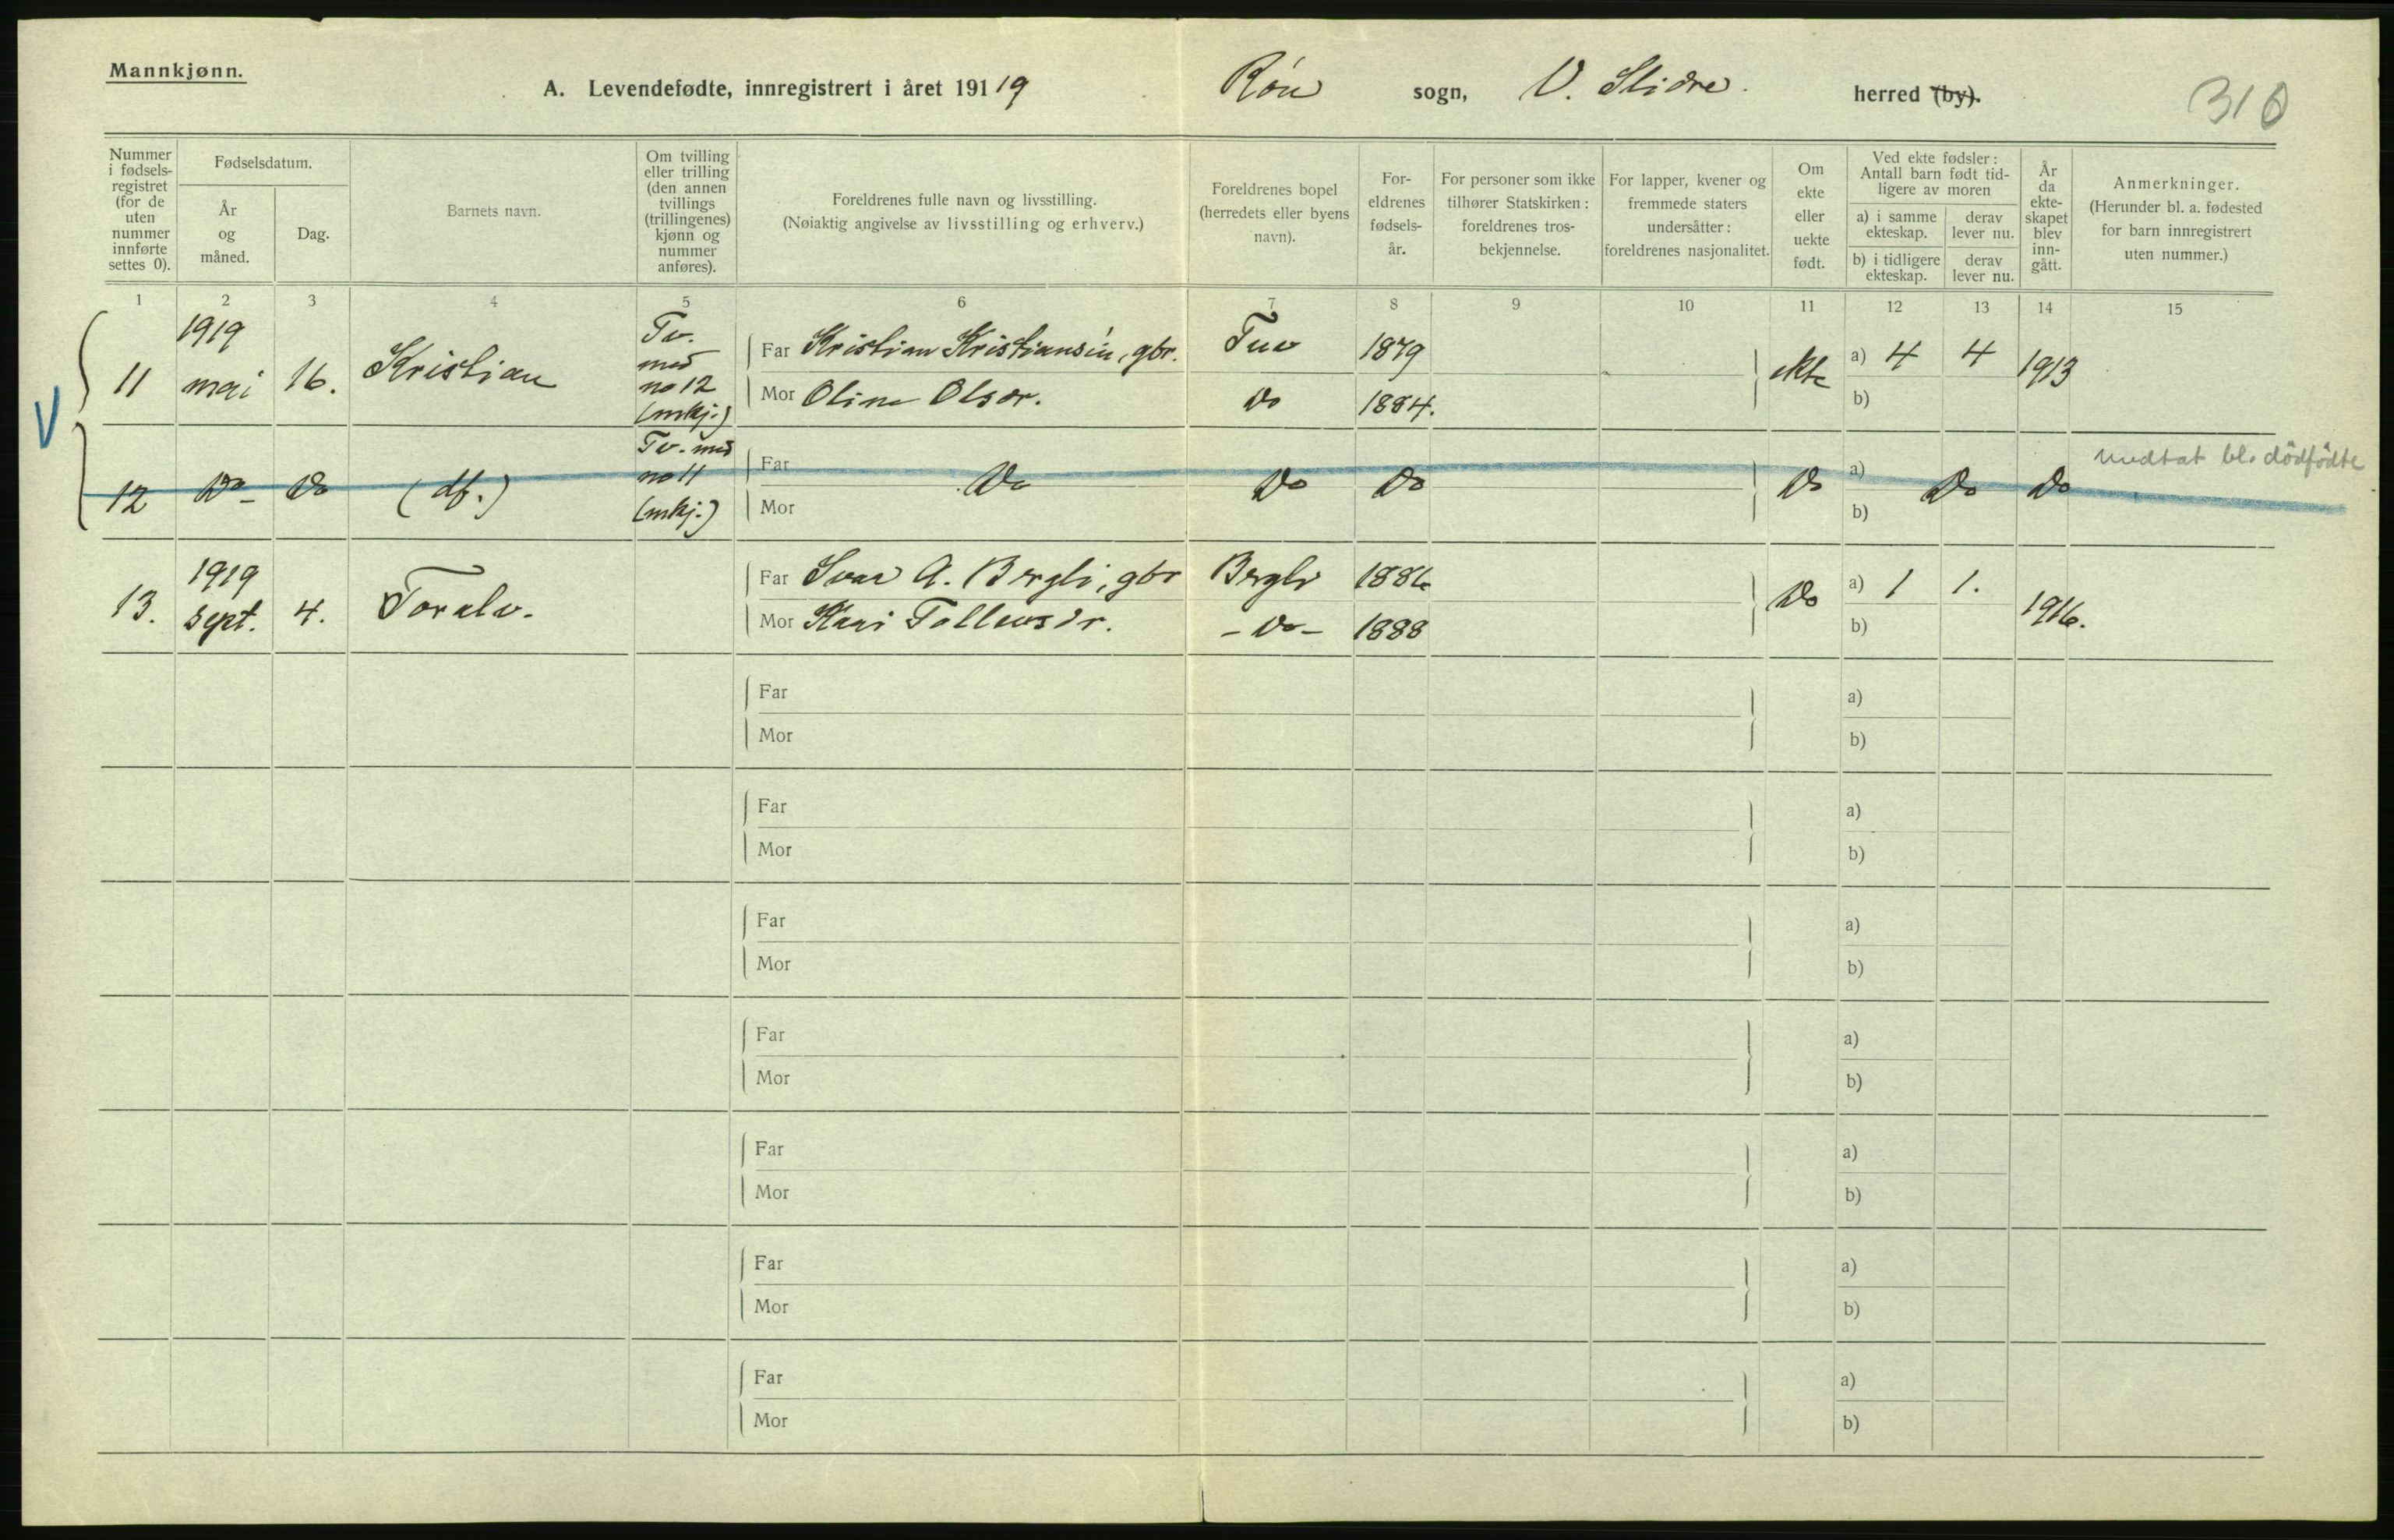 Mannkjønn.
A. Levendefødte, innregistrert i året 19119 Røn sogn, V. Slidre. herred (by).
310
Nummer i fødsels- registret (for de uten nummer innførte settes 0).
Fødselsdatum.
År og måned.
Dag.
Barnets navn.
Om tvilling eller trilling (den annen tvillings (trillingenes) kjønn og nummer anføres).
Foreldrenes fulle navn og livsstilling.
(Nøiaktig angivelse av livsstilling og erhverv.)
Foreldrenes bopel (herredets eller byens navn).
For- eldrenes fødsels- år.
For personer som ikke tilhører Statskirken: foreldrenes tros- bekjennelse.
For lapper, kvener og fremmede staters undersåtter: foreldrenes nasjonalitet.
Om ekte eller uekte født.
Ved ekte fødsler: Antall barn født tid- ligere av moren
a) i samme ekteskap.
derav lever nu.
b) i tidligere ekteskap.
derav lever nu.
År da ekte- skapet blev inn- gått.
Anmerkninger.
(Herunder bl. a. fødested for barn innregistrert uten nummer.)
1 2 3 4 5 6 7 8 9 10 11 12 13 14 15
V
11 1919 mai 16. Kristian Tv. med no 12 (mkj.)
Far Kristian Kristiansen, gbr. Tuv 1879
Mor Oline Olsdr. Do 1884.
ekte a) 4 4 1913
b)
12 Do - Do (df.) Tv. med no 11 (mkj.)
Far Do Do Do Do a) Do Do
Mor b)
medtat bl. dödfödte
13. 1919 sept. 4. Toralv.
Far Ivar A. Bergli, gbr Bergli 1886
Mor Kari Tollevsdr. - Do - 1888
Do a) 1 1. 1916.
b)
Far a)
Mor b)
Far a)
Mor b)
Far a)
Mor b)
Far a)
Mor b)
Far a)
Mor b)
Far a)
Mor b)
Far a)
Mor b)